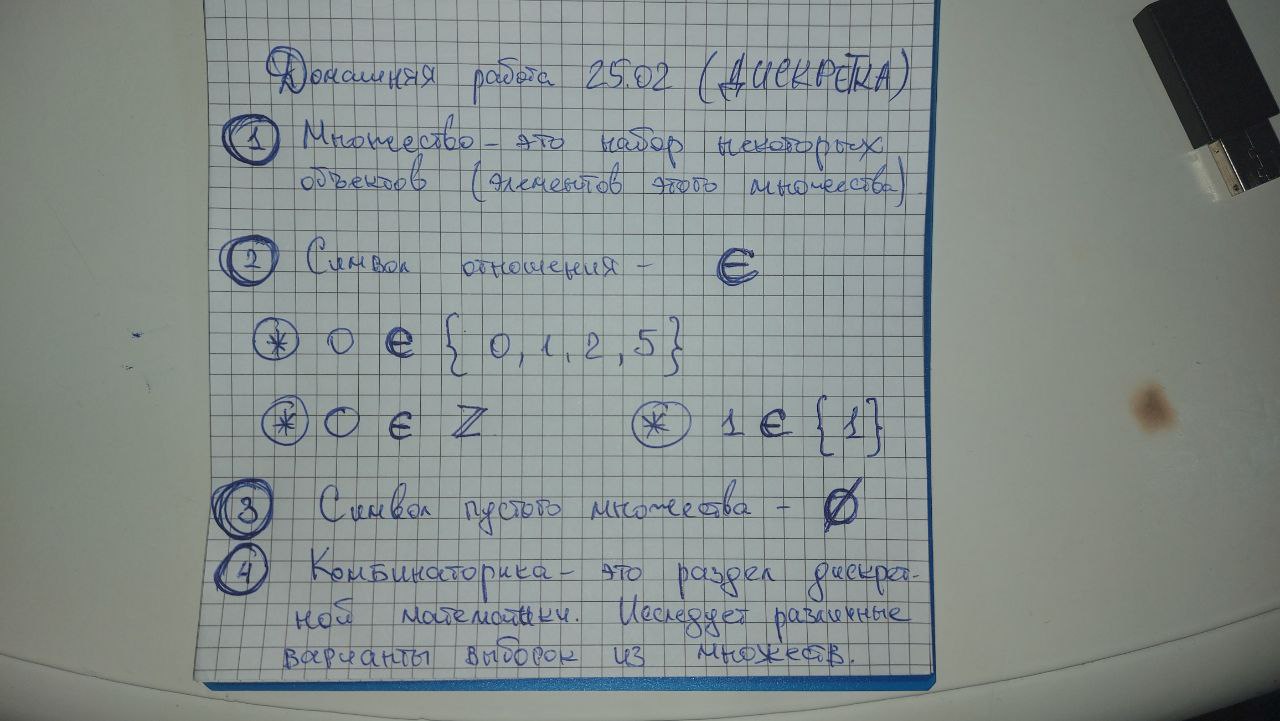 Домашняя работа 25.02 (ДИСКРЕТКА)
1 Множество - это набор некоторых
объектов (элементов этого множества)
2 Символ отношения - ∈
* 0 ∈ { 0, 1, 2, 5 }
* 0 ∈ Z * 1 ∈ { 1 }
3 Символ пустого множества - ∅
4 Комбинаторика - это раздел дискрет-
ной математики. Исследует различные
варианты выборок из множеств.